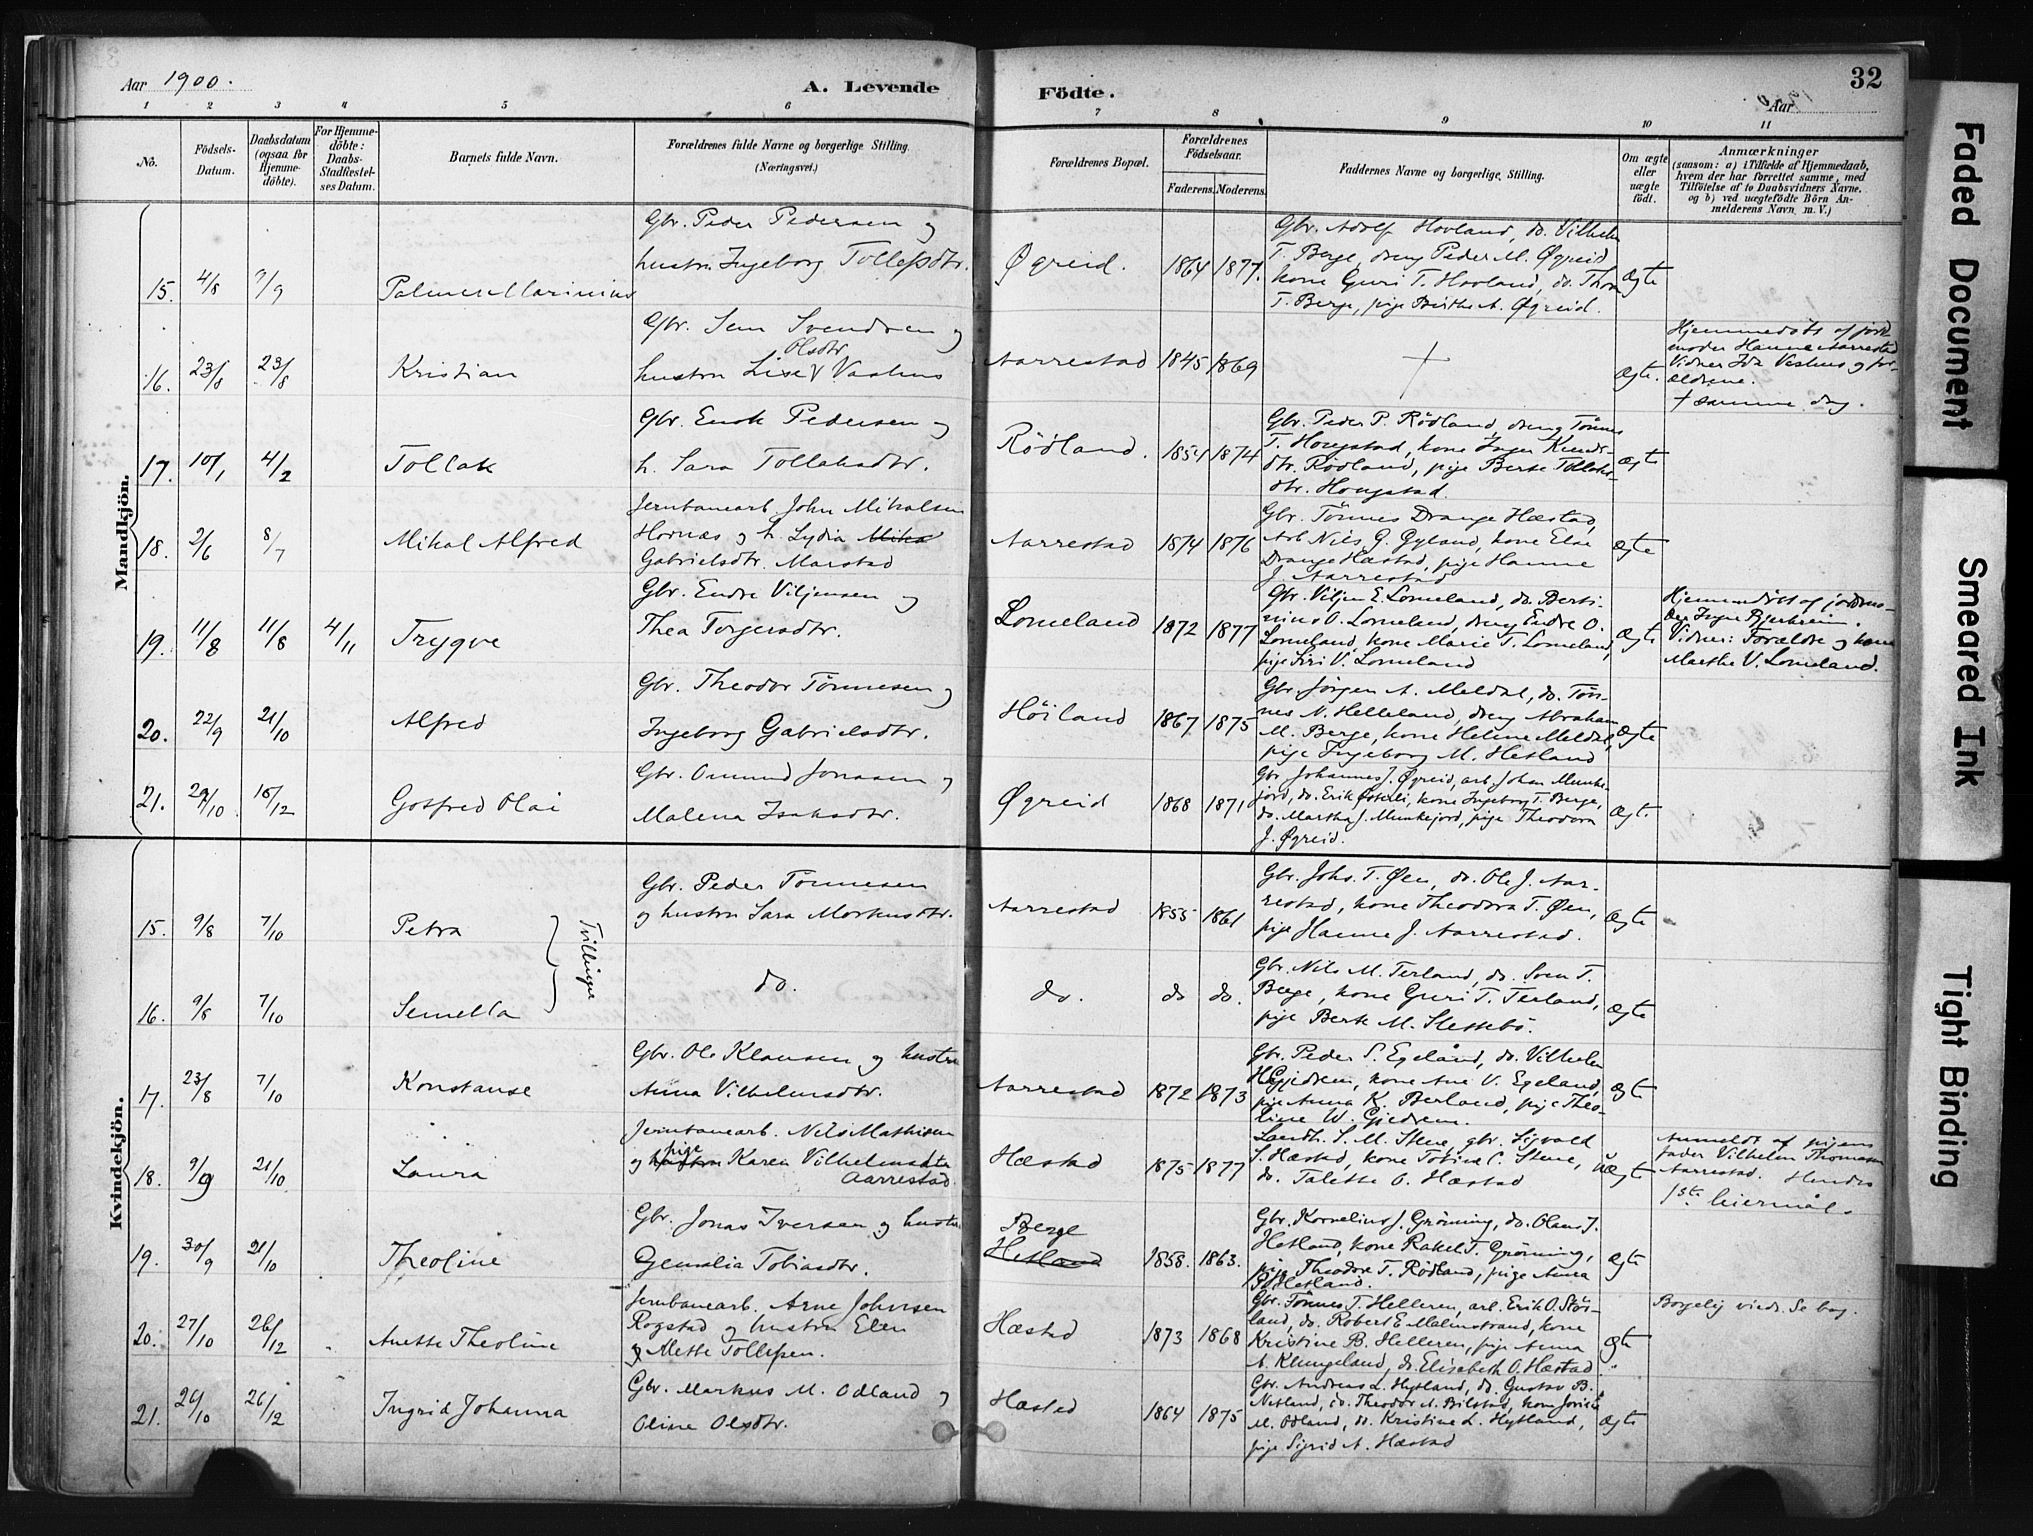 Aar 1900.
A. Levende
Födte.
Aar 1900
32
1 2 3 4 5 6 7 8 9 10 11
No.
Födsels-Datum.
Daabsdatum (ogsaa for Hjemmedöbte).
For Hjemmedöbte: Daabs-Stadfæstelses Datum.
Barnets fulde Navn.
Forældrenes fulde Navne og borgerlige Stilling. (Næringsvei.)
Forældrenes Bopæl.
Forældrenes Födselsaar.
Faderens. Moderens.
Faddernes Navne og borgerlige Stilling.
Om ægte eller uægte födt.
Anmærkninger
(saasom: a) i Tilfælde af Hjemmedaab, hvem der har forrettet samme, med Tilföielse af to Daabsvidners Navne. og b) ved uægtefödte Börn Anmelderens Navn m. V.)
Mandkjön.
15. 4/8 9/9 Palmer Marinius
Gbr. Peder Pedersen og
hustru Ingeborg Tollefsdtr.
Øgreid. 1864 1877.
Gbr. Adolf Hovland, do. Vilhelm
T. Berge, dreng Peder M. Øgreid
kone Guri T. Hovland, do. Thora
T. Berge, pige Birthe A. Øgreid.
Ægte
16. 23/8 23/8 Kristian
Gbr. Sem Svendsen og
Olsdtr
hustru Lise V Vashus
Aarrestad 1845 1869
Ægte.
Hjemmedöbt af jord-
moder Hanne Aarrestad
Vidner Ida Vashus og for-
ældrene.
† samme dag.
17. 10/1 4/2 Tollak
Gbr. Enok Pedersen og
h. Sara Tollaksdtr.
Rödland. 1854 1874
Gbr. Peder P. Rödland, dreng Tönnes
T. Hougstad, kone Inger Knuds-
dtr. Rödland, pige Berte Tollaks-
dtr. Hougstad.
Ægte
18. 2/6 8/7 Mikal Alfred
Jernbanearb. John Mikalsen
Hornæs og h. Lydia Mika
Gabrielsdtr. Marstad
Aarrestad 1874 1876
Gbr. Tönnes Drange Hæstad,
Arb Nils G. Gyland, kone Else
Drange Hæstad, pige Hanne
J. Aarrestad
Ægte
19. 11/8 11/8 4/11 Trygve
Gbr. Endre Viljensen og
Thea Torgersdtr.
Lomeland 1872 1877
Gbr. Viljen E. Lomeland, do. Berti-
nius O. Lomeland, dreng Endre O.
Lomeland, kone Marie T. Lomeland,
pige Siri V. Lomeland
Ægte
Hjemmedöbt af jordmo-
der Inger Bjerkreim.
Vidner: Forældre og kone
Marthe V. Lomeland.
20. 22/9 21/10 Alfred
Gbr. Theodor Tönnesen og
Ingeborg Gabrielsdtr.
Höiland 1867 1875
Gbr. Jörgen A. Meldal, do. Tön-
nes N. Helleland, dreng Abraham
M. Berge, kone Helene Meldal,
pige Ingeborg M. Hetland
Ægte
21. 29/10 16/12 Gotfred Olai
Gbr. Omund Jonasen og
Malena Isaksdtr.
Øgreid 1868 1871
Gbr Johannes J. Øgreid, arb. Johan Munke-
jord, do. Erik Østebö, kone Ingeborg T. Berge,
do. Martha J. Munkejord, pige Theodora
J. Øgreid.
Ægt.
Kvindekjön.
15. 9/8 7/10 Petra
Tvillinger
Gbr. Peder Tönnesen
og hustru Sara Markusdtr.
Aarrestad 1855 1861
Gbr. Johs. T. Øen, do. Ole J. Aar-
restad, kone Theodora T. Øen,
pige Hanne J. Aarrestad.
Ægte
16. 9/8 7/10 Semella
do.
do. do do.
Gbr. Nils M. Terland, do. Sven T.
Berge, kone Guri T. Terland,
pige Berte M. Slettebö.
Ægte
17. 23/8 7/10 Konstanse
Gbr. Ole Klausen og hustru
Anna Vilhelmsdtr.
Aarrestad 1872 1873
Gbr. Peder S. Egeland, do. Vilhelm
H. Gjedrem, kone Ane V. Egeland,
pige Anna K. Berland, pige Theo-
line W. Gjedrem.
Ægte
18. 9/9 21/10 Laura
Jernbanearb. Nils Mathisen
pige
og hustru Karen Vilhelmsdtr
Aarrestad.
Hæstad 1875 1877
Landh. S. M. Stene, gbr. Sigvald
S. Hæstad, kone Tobine C. Stene,
do. Talette O. Hæstad
Uægte
Anmeldt af pigens
fader Vilhelm Thomasen
Aarrestad. Hendes
1ste leiermål.
19. 30/9 21/10 Theoline
Gbr. Jonas Iversen og hustru
Gemalia Tobiasdtr.
Berge
Hetland 1858. 1863.
Gbr. Kornelius J. Gröning, do. Olaus J.
Hetland, kone Rakel T. Gröning,
pige Theodore T. Rödland, pige Anna
B. Hetland.
Ægte
20. 27/10 26/12 Anette Theoline
Jernbanearb. Arne Johnsen
Rogstad og hustru Elen
Mette Tollefsen.
Hæstad 1873 1868
Gbr. Tönnes T. Helleren, arb. Erik O. Stös-
land, do. Robert E. Malmstrand, kone
Kristine B. Helleren, pige Anna
A. Klungeland, do. Elisabeth O. Hæstad
Ægte
Borgelig viede. Se bag.
21. 26/10 26/12 Ingrid Johanna
Gbr. Markus M. Odland og
Oline Olsdtr.
Hæstad 1864 1875
Gbr. Andreas L. Hytland, do. Gustav B.
Netland, do. Theodor A. Bilstad, kone Jorine
M. Odland, do. Kristine L. Hytland,
pige Sigrid A. Hæstad
Ægte
Faded Document
Smeared Ink
Tight Binding